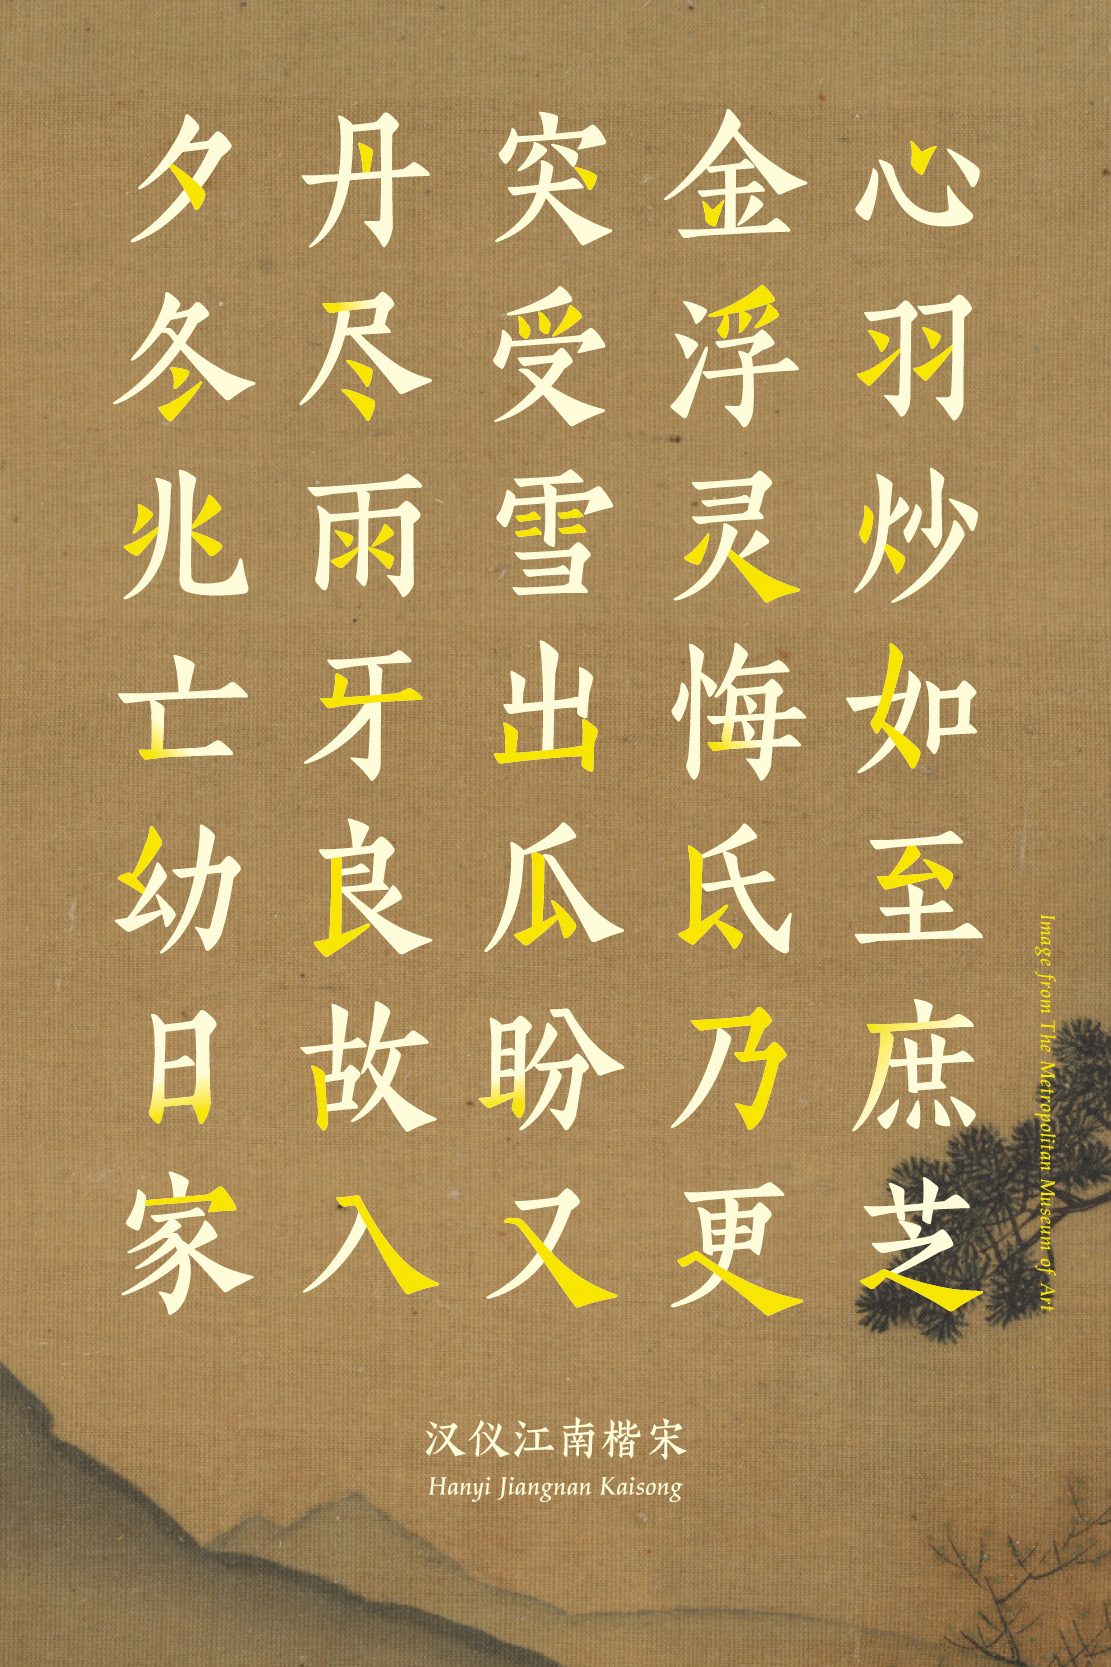 夕丹突金心
冬尽受浮羽
兆雨雪灵炒
亡牙出悔如
幼良瓜氐至
日故盼乃庶
家入又更芝
Image from The Metropolitan Museum of Art
汉仪江南楷宋
Hanyi Jiangnan Kaisong